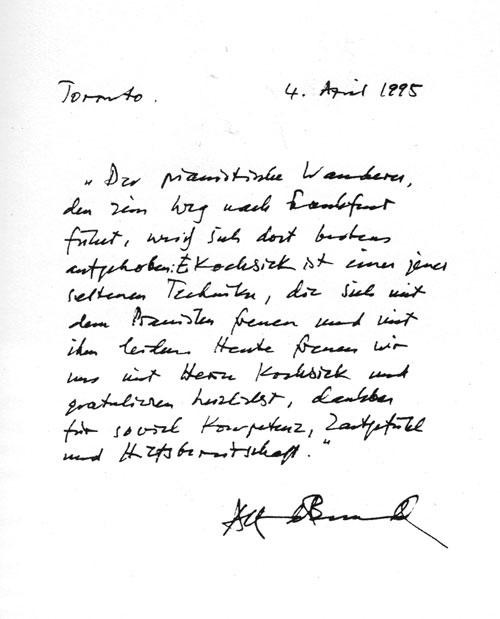 Toronto. 4. April 1995
"Der pianistische Wanderer,
den sein Weg nach Frankfurt
führt, weiß sich dort bestens
aufgehoben: E Kochsiek ist einer jener
seltenen Techniker, die sich mit
dem Pianisten freuen und mit
ihm leiden. Heute freuen wir
uns mit Herrn Kochsiek und
gratulieren herzlichst, dankbar
für soviel Kompetenz, Zartgefühl
und Hilfsbereitschaft."